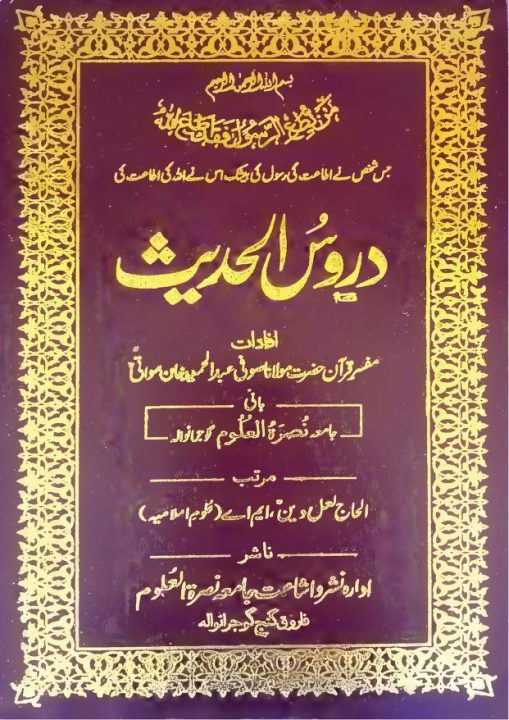 بسم اللہ الرحمٰن الرحیم
مَنْ يُّطِعِ الرَّسُوْلَ فَقَدْ اَطَاعَ اللهَ
جس شخص نے اطاعت کی رسول کی بیشک اس نے اللہ کی اطاعت کی
دروسُ الحدیث
افادات
مفسر قرآن حضرت مولانا صوفی عبدالحمید خان سواتیؒ
بانی
جامعہ نُصرَۃُ العلُوم گوجرانوالہ
مرتب
الحاج لعل دین، ایم اے (علوم اسلامیہ)
ناشر
ادارہ نشر و اشاعت جامعہ نصرۃ العلُوم
فاروق گنج گوجرانوالہ